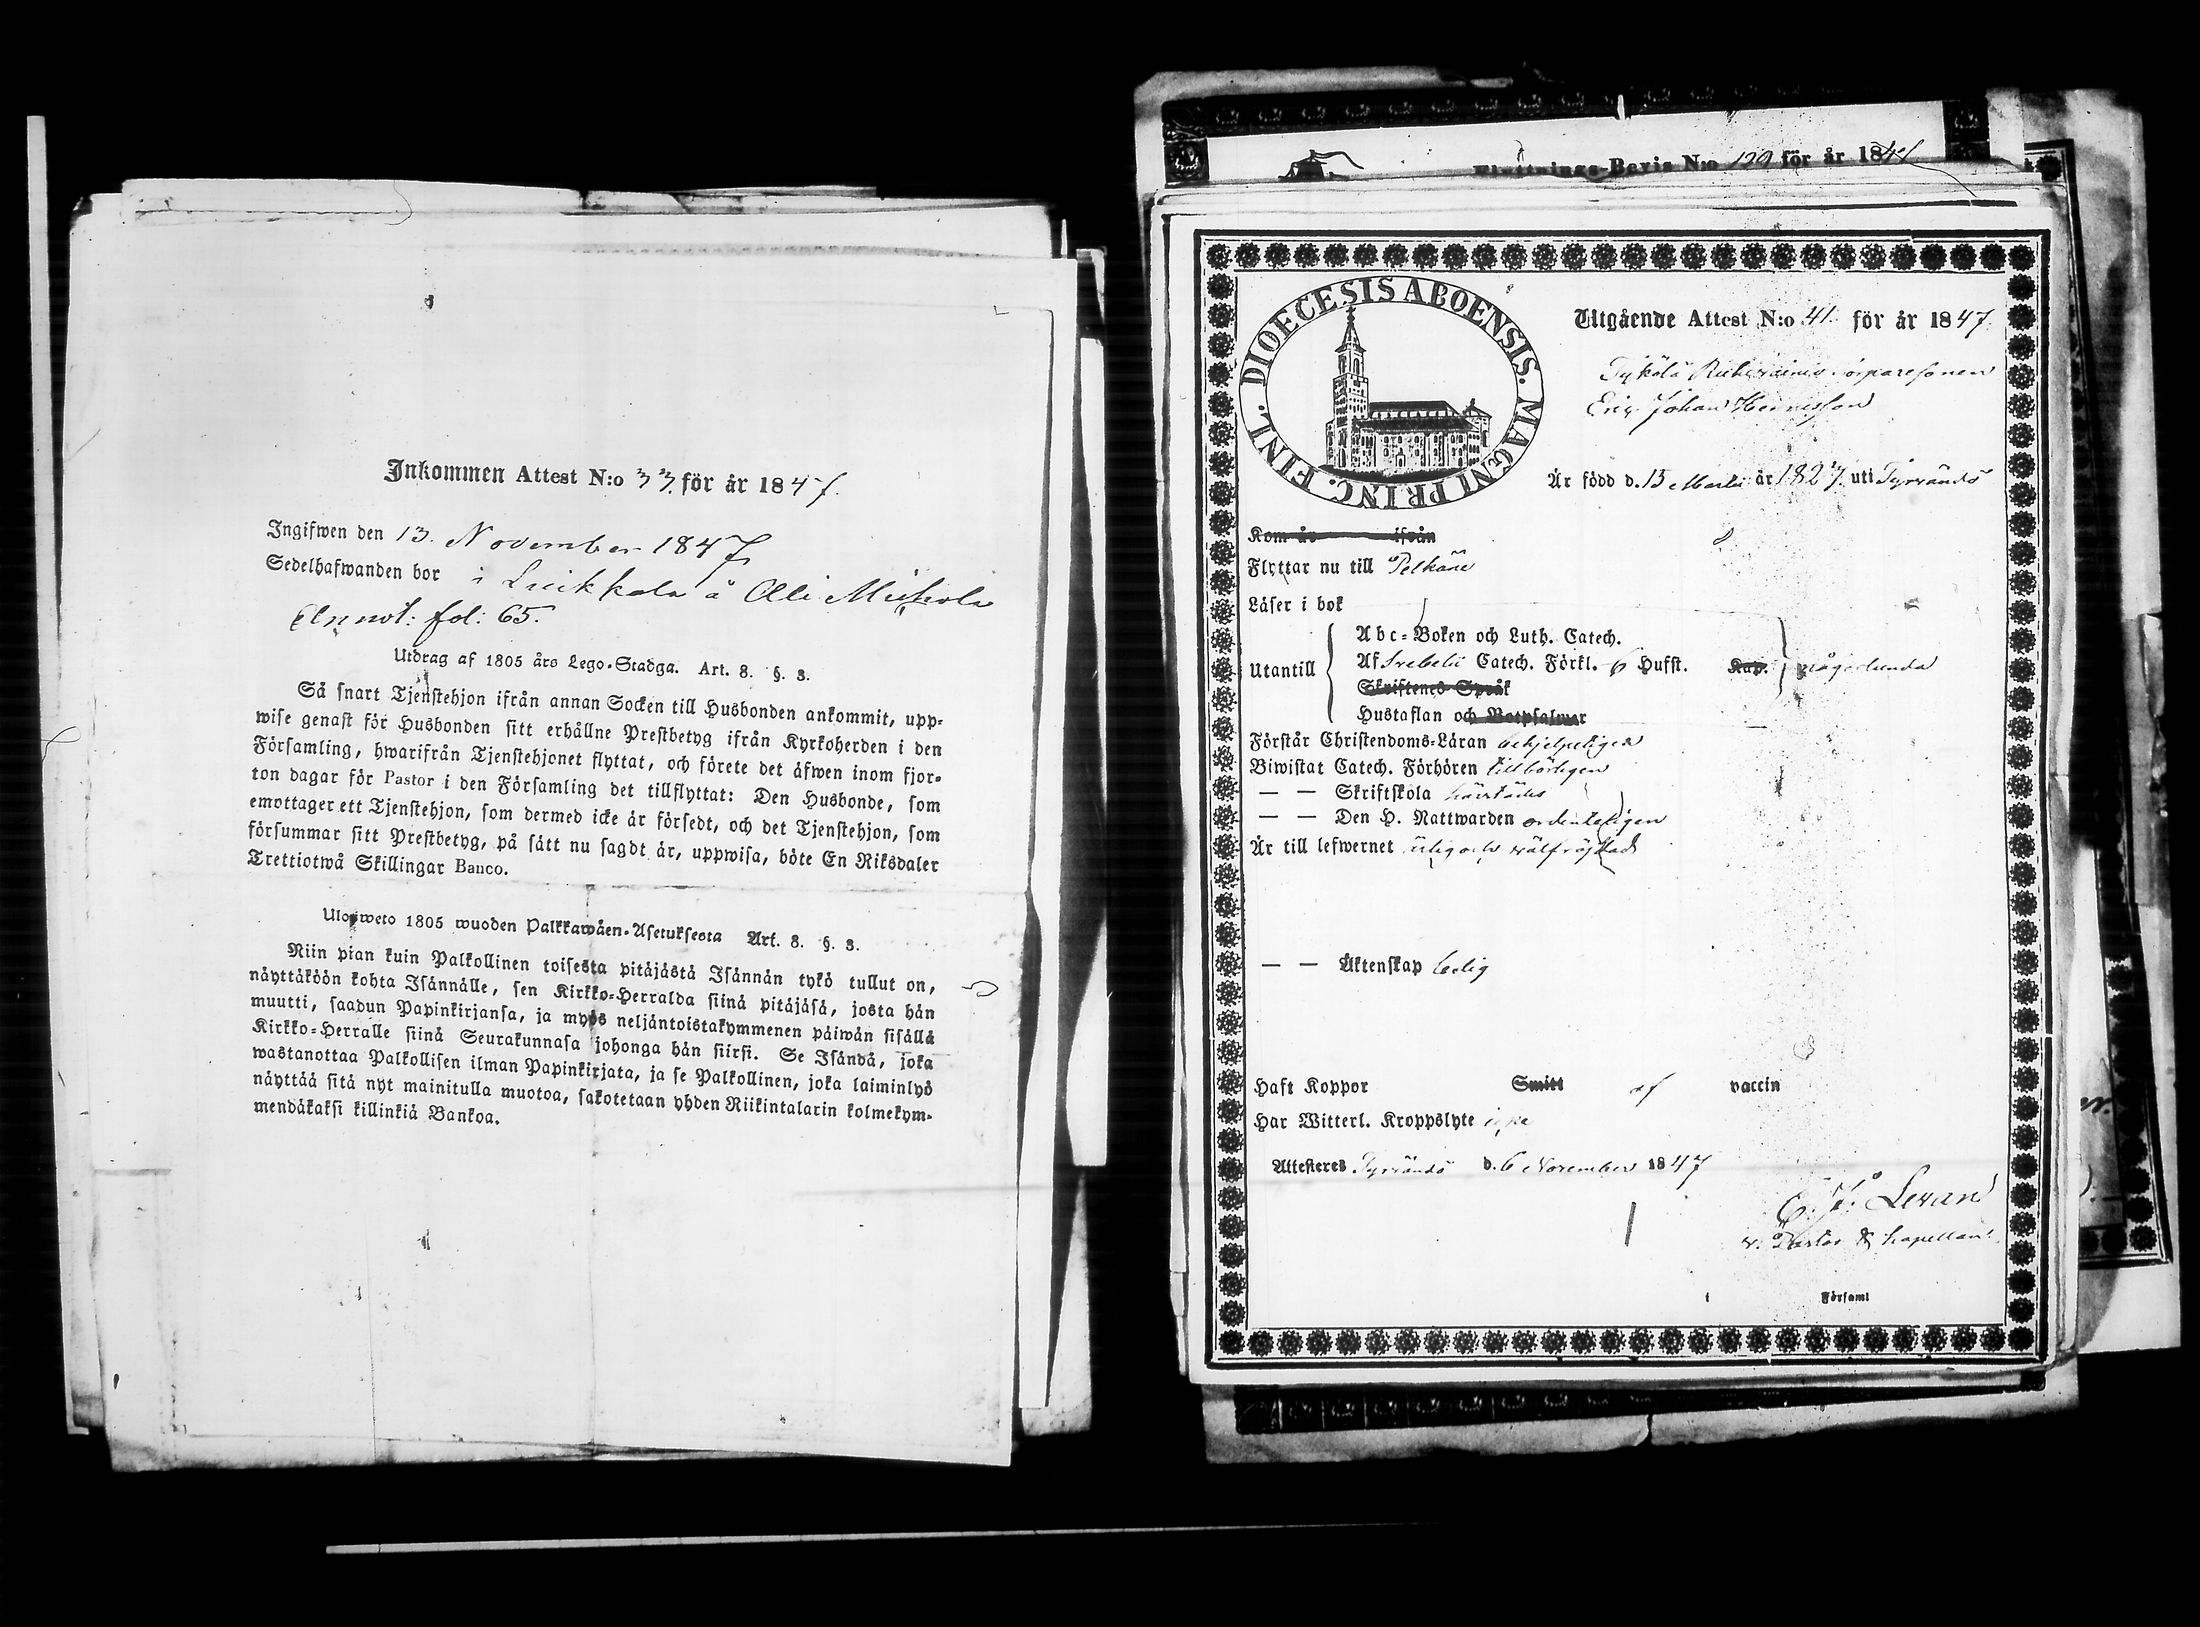 Inkommen Attest N:o 33. för år 1847.
Ingifwen den 13. November 1847
Sedelhafwanden bor i Luikkala å Olli Mickola
Annot: fol: 65.
Utdrag af 1805 års Lego-Stadga. Art. 8. §. 3.
Så snart Tjenstehjon ifrån annan Socken till Husbonden ankommit, upp-
wise genast för Husbonden sitt erhållne Prestbetyg ifrån Kyrkoherden i den
Församling, hwarifrån Tjenstehjonet flyttat, och förete det äfwen inom fjor-
ton dagar för Pastor i den Församling det tillflyttat: Den Husbonde, som
emottager ett Tjenstehjon, som dermed icke är försedt, och det Tjenstehjon, som
försummar sitt Prestbetyg, på sätt nu sagdt är, uppwisa, böte En Riksdaler
Trettiotwå Skillingar Banco.
Ulosweto 1805 wuoden Palkkawäen-Asetuksesta Art. 8. §. 3.
Niin pian kuin Palkollinen toisesta pitäjästä Isännän tykö tullut on,
näyttäköön kohta Isännälle, sen Kirkko-Herralda siinä pitäjäsä, josta hän
muutti, saadun Papinkirjansa, ja myös neljäntoistakymmenen päiwän sisällä
Kirkko-Herralle siinä Seurakunnasa johonga hän siirsi. Se Isändä, joka
wastanottaa Palkollisen ilman Papinkirjata, ja se Palkollinen, joka laiminlyö
näyttää sitä nyt mainitulla muotoa, sakotetaan yhden Riikintalarin kolmekym-
mendäkaksi killinkiä Bankoa.
Flyttnings-Bevis N:o 129 för år 184
DIOECESIS ABOENSIS. MAGNI PRINC. FINL.
Utgående Attest N:o 41. för år 1847.
Eric Johan Henricsson
Är född d. 15 Martii år 1827. uti Tyrvändö
Kom år ifrån
Flyttar nu till Pelkäne
Läser i bok
Utantill
Abc-Boken och Luth. Catech.
Af Svebelii Catech. Förkl. 6 Hufst. Kap. någorlunda
Skriftenes Språk
Hustaflan och Botpsalmer
Förstår Christendoms-Läran behjelpeligen
Biwistat Catech. Förhören tillbörligen
— — Skriftskola härstädes
— — Den H. Nattwarden ordenteligen
Är till lefwernet ärlig och välfrejdad
— — Äktenskap ledig
Haft Koppor Smitt af vaccin
Har Witterl. Kroppslyte icke
Attesteras Tyrvändö d. 6 November 1847
C. J. Levan
v. Pastor & Kapellan.
i Församl